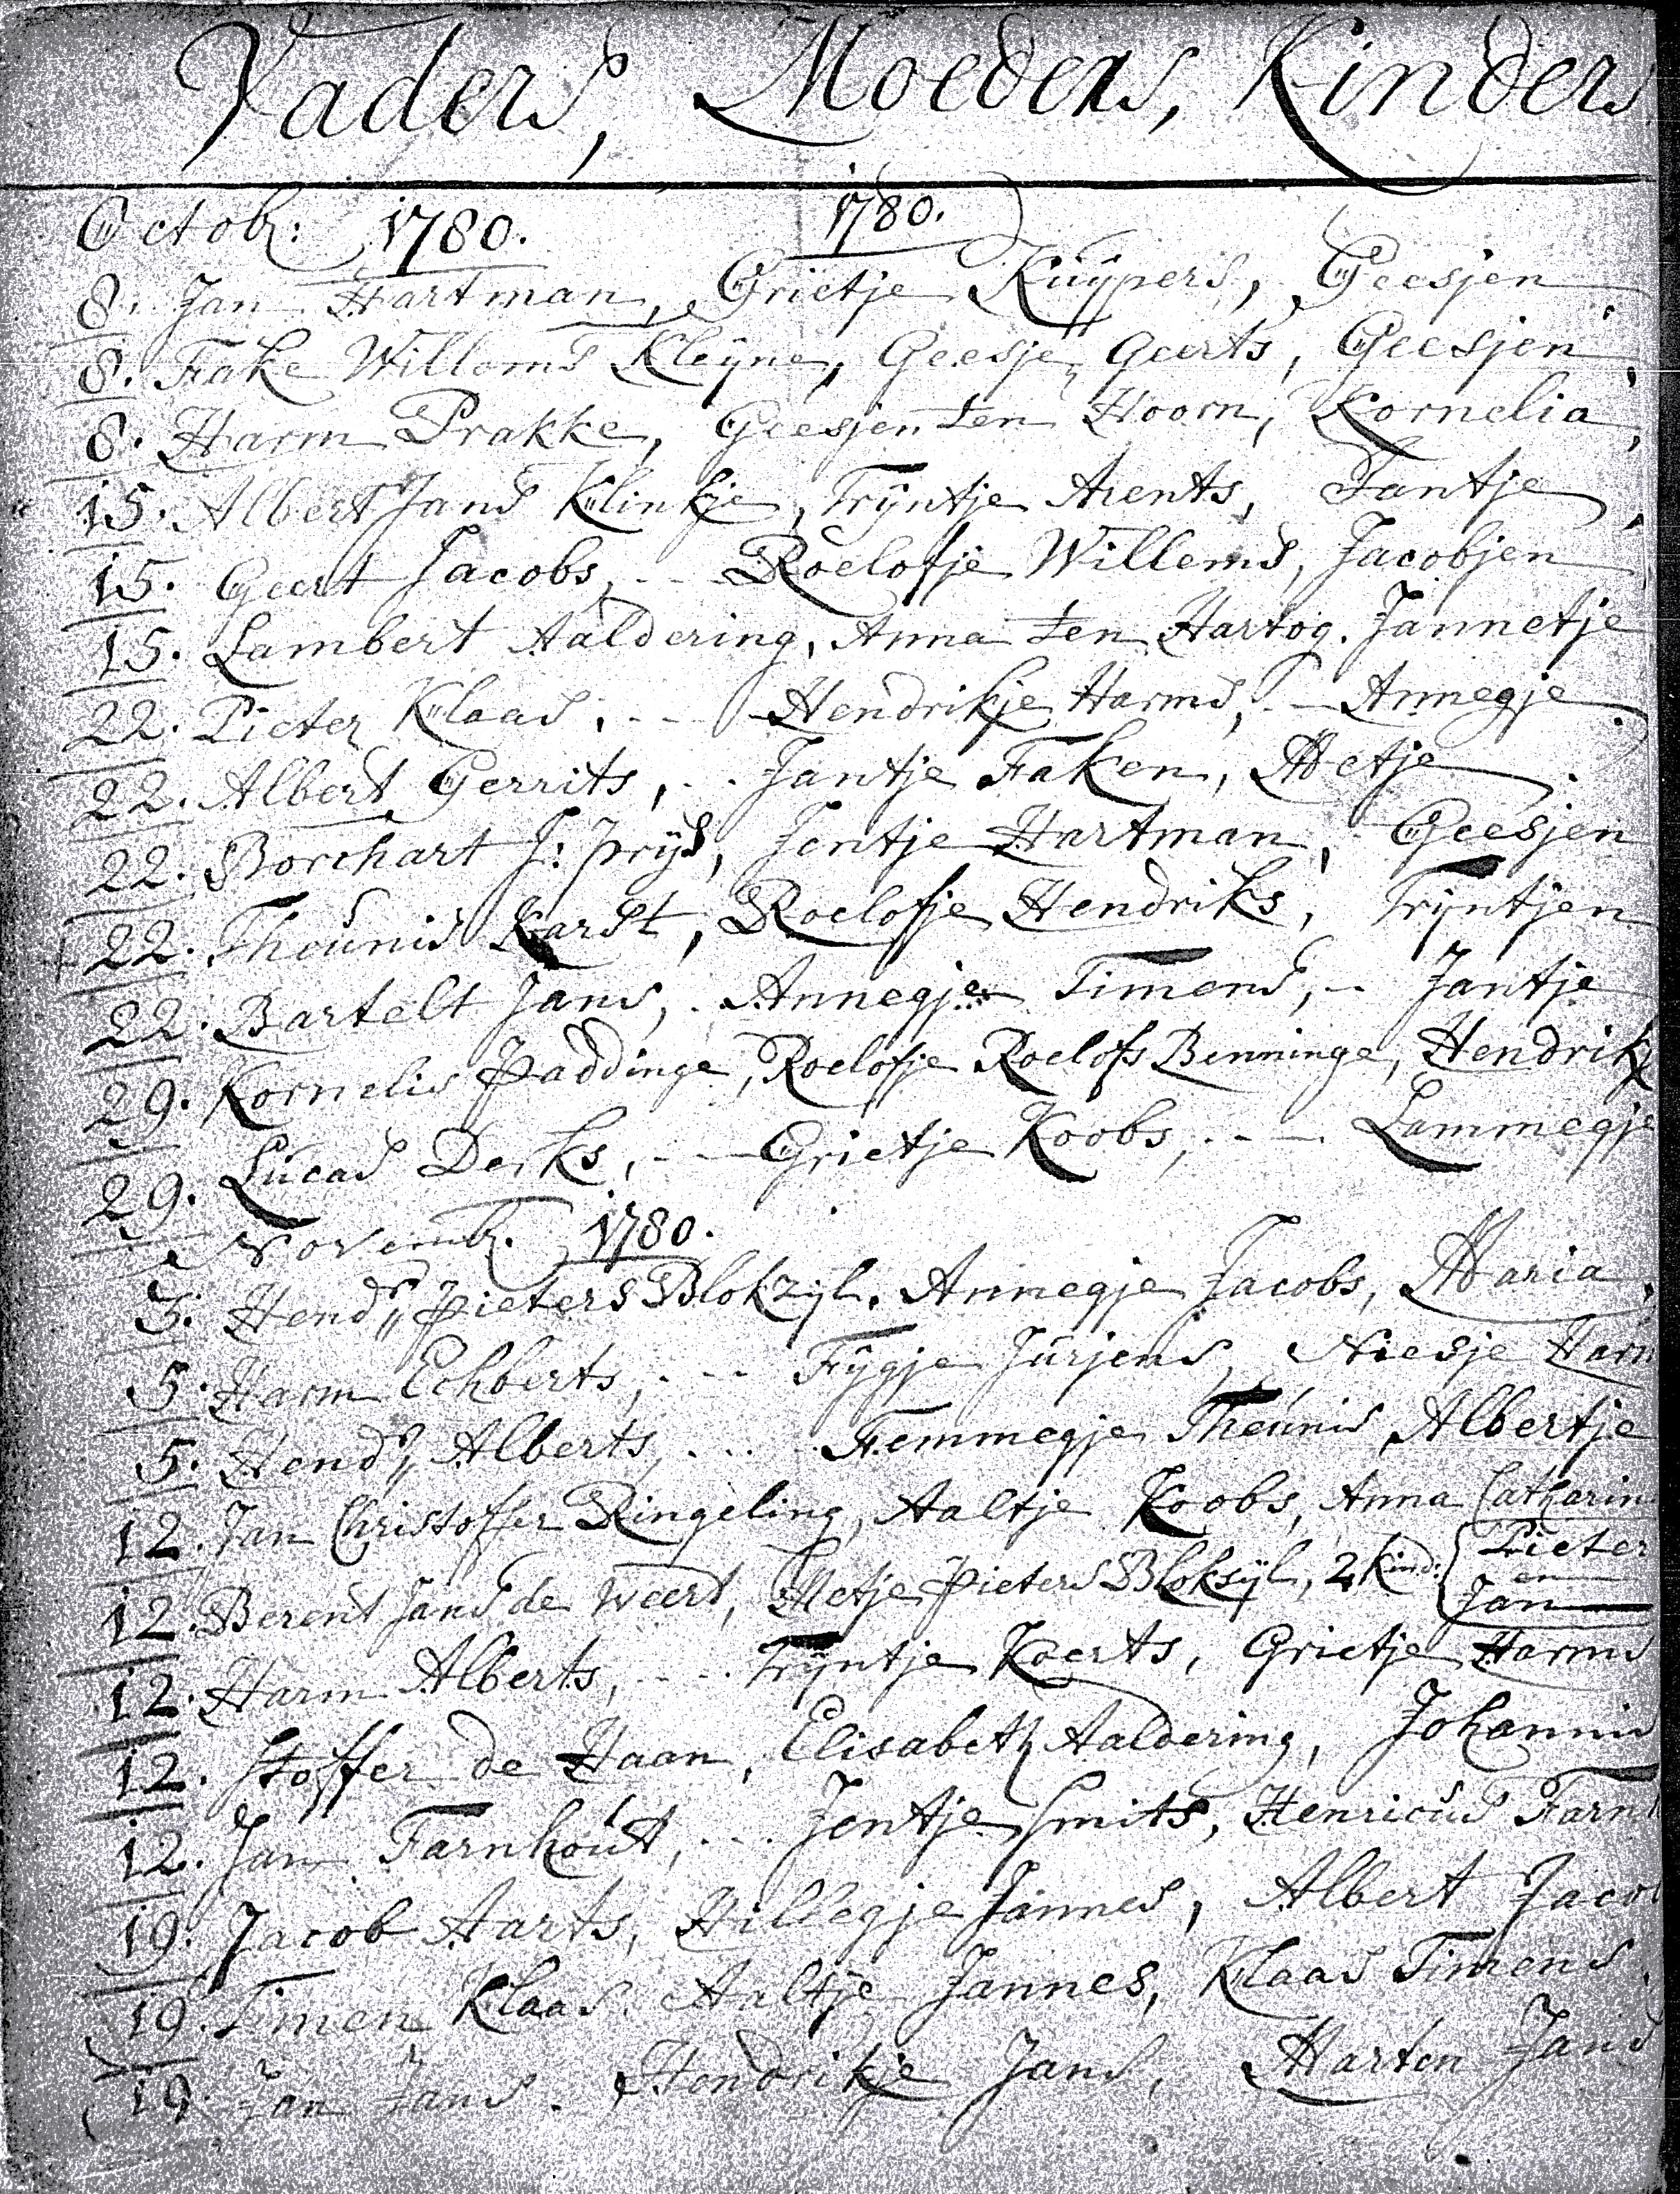 Vaders, Moeders, Kinders
Octob: 1780. 1780.
8. Jan Hartman, Grietje Kuÿpers, Geesjen
8. Fake Willems Kleÿne, Geesje Geerts, Geesjen,
8. Harm Prakke, Geesjen ten Hoorn, Kornelia,
15. Albert Jans Klinkje, Trÿntje Arents, Jantje,
15. Geert Jacobs, - - Roelofje Willems, Jacobjen
15. Lambert Aaldering, Anna ten Hartog. Jannetje
22. Pieter Klaas, - - Hendrikje Harms, - Annegje
22. Albert Gerrits, - - Jantje Faken, Metje.
22. Borchart J: prÿs, Jentje Hartman, Geesjen
22. Theunis Karst, Roelofje Hendriks, Trÿntjen
22. Bartelt Jans, - Annegje Timens, - Jantje
29. Kornelis Paddinge, Roelofje Roelofs Benninge, Hendrikj
29. Lucas Derks, - - Grietje Koobs, - - Lammegje
Novemb. 1780.
5. Hendr Pieters Blokzÿl, Annegje Jacobs, Maria,
5. Harm Echberts, - - Fÿgje Jurjens, Niesje Harm
5. Hendr Alberts, - - Femmegje Theunis, Albertje
12. Jan Christoffer Ringeling, Aaltje Koobs, Anna Catharin
12. Berent Jans de Weert, Metje Pieters Bloksÿl, 2 Kind: Pieter en Jan
12. Harm Alberts, - - Trÿntje Koerts, Grietje Harms
12. Stoffer de Haan, Elisabeth Aaldering, Johannis
12. Jan Farnhout, - - Jentje Smits, Henricus Farn
19. Jacob Aarts, Hillegje Jannes, Albert Jaco
19. Timen Klaas. Aaltje Jannes, Klaas Timens
19. Jan Jans. Hendrikje Jans, Marten Jans